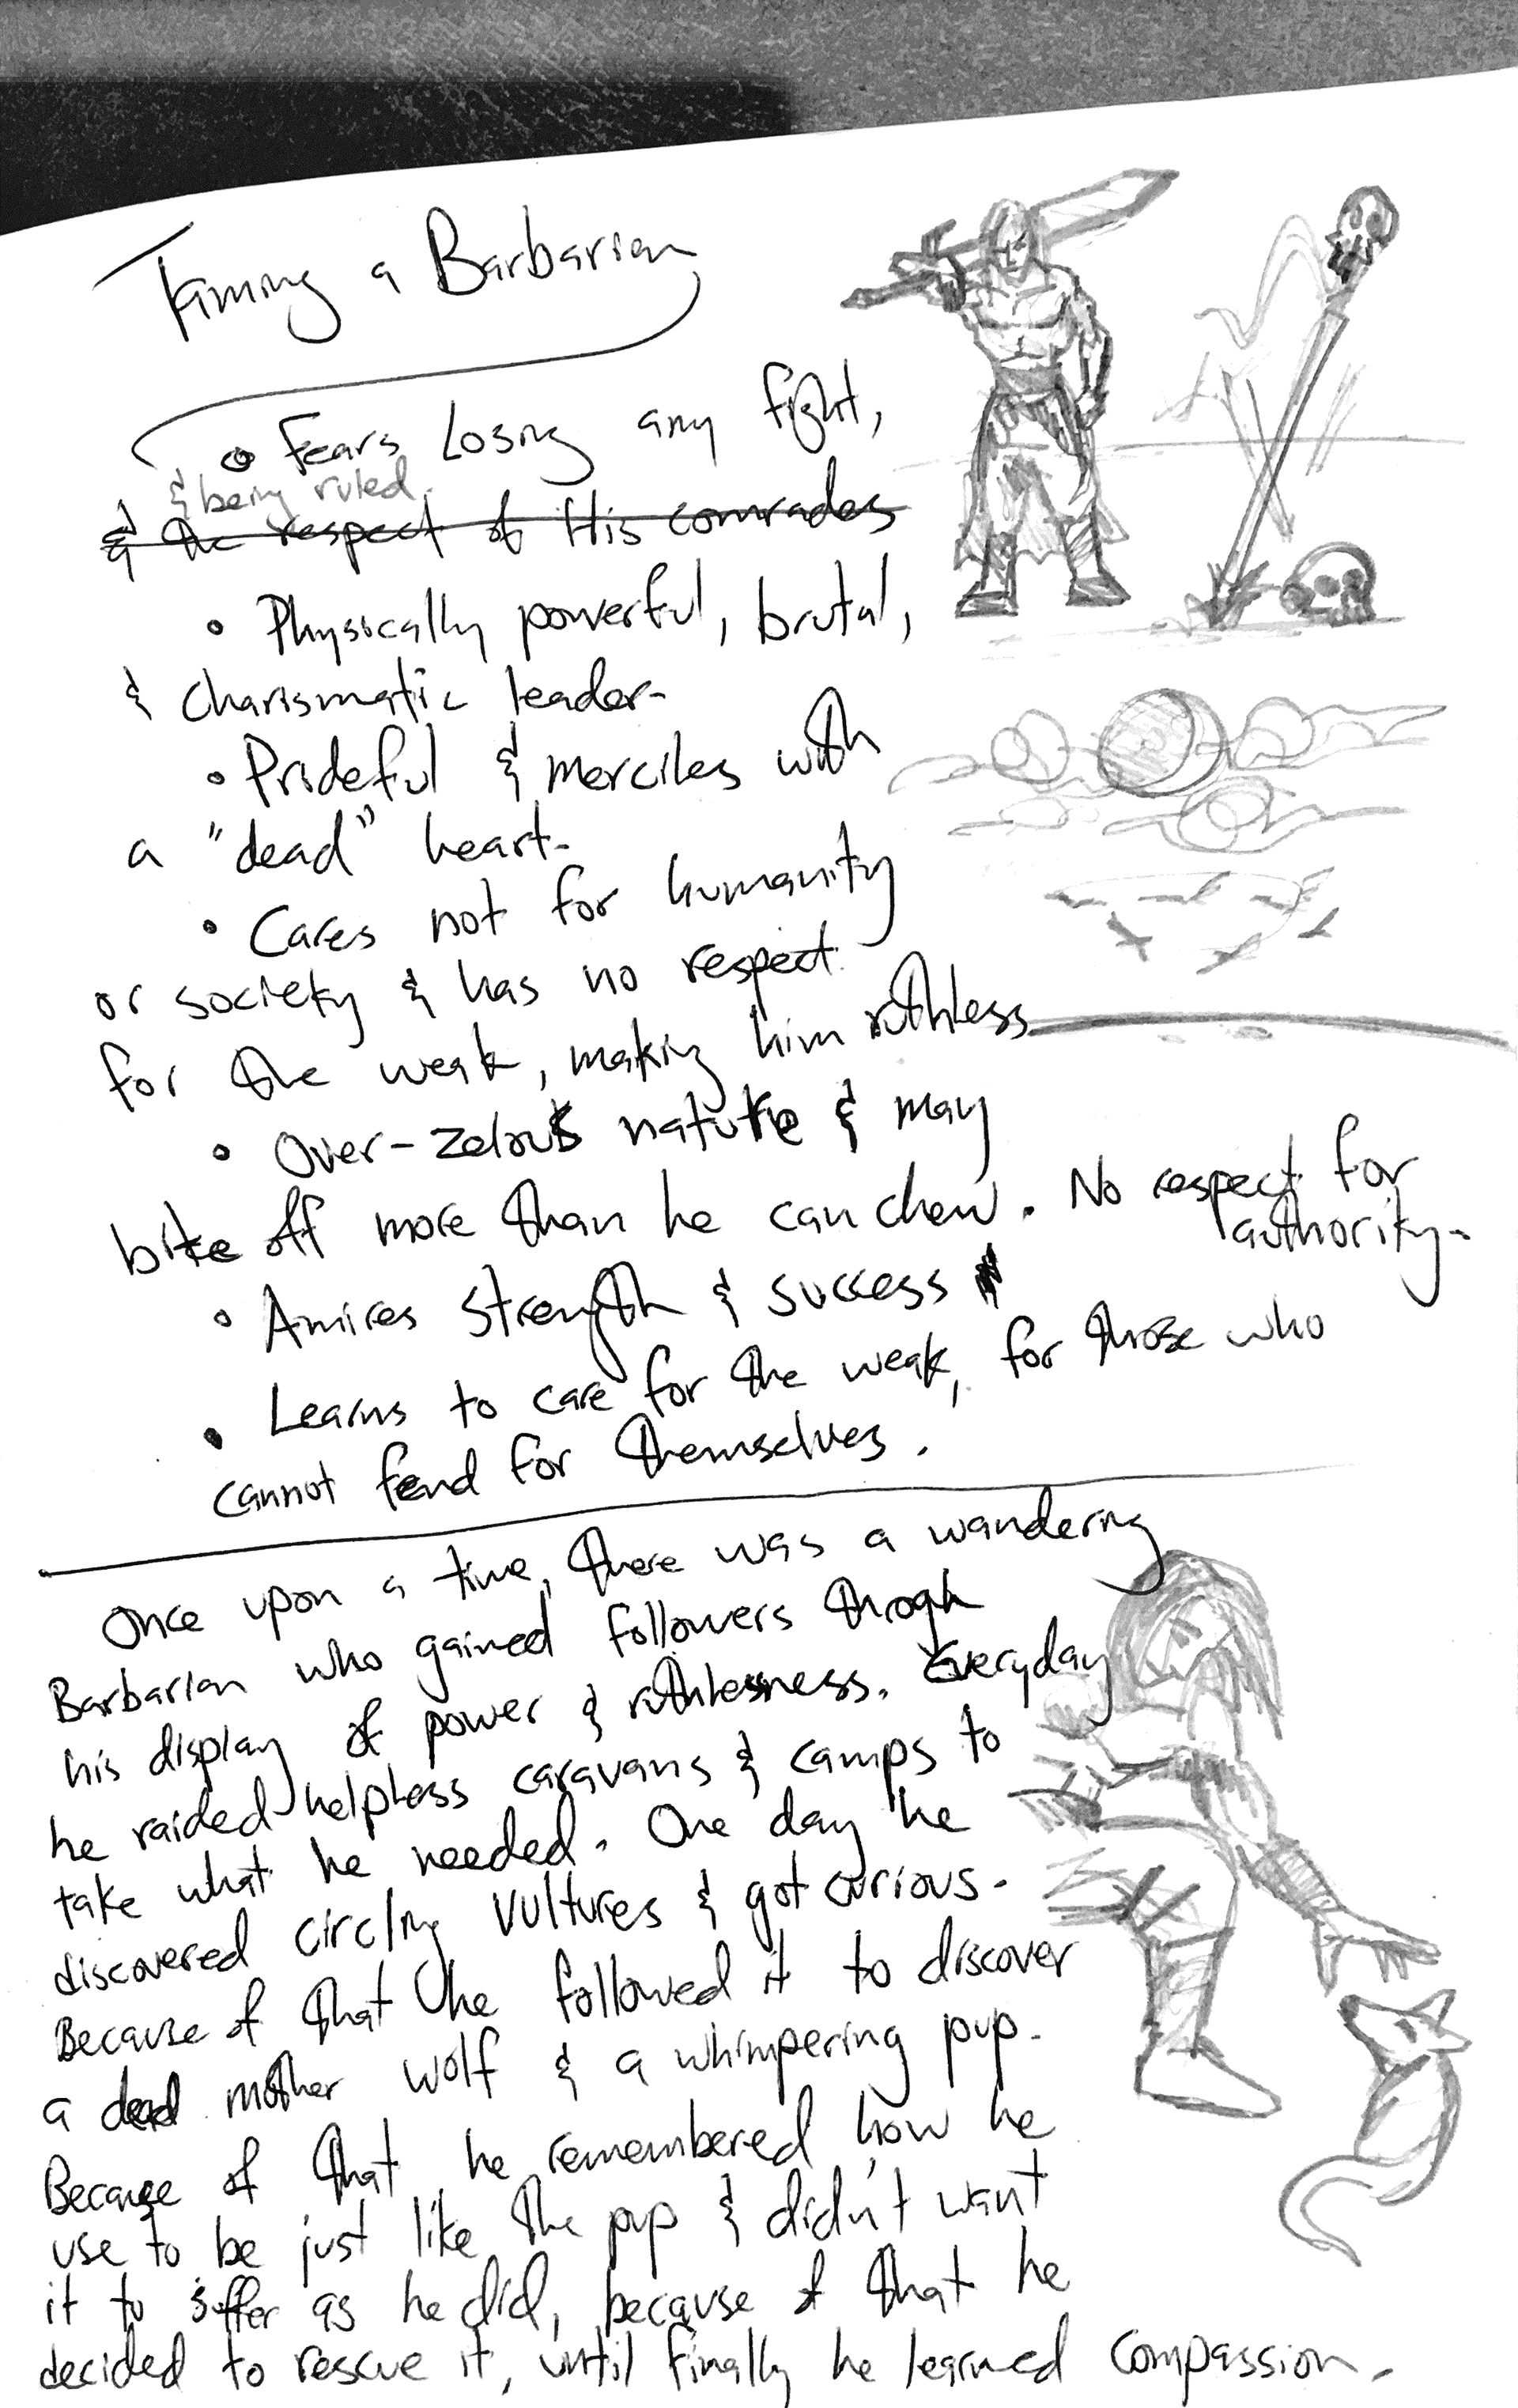 Taming a Barbarian
• Fears Losing any fight,
& being ruled.
& the respect of His comrades
• Physically powerful, brutal,
& charismatic leader.
• Prideful & merciles with
a "dead" heart.
• Cares not for humanity
or society & has no respect
for the weak, making him ruthless
• Over-zelous nature & may
bite off more than he can chew. No respect for
authority.
• Amires strength & success
• Learns to care for the weak, for those who
cannot fend for themselves.
Once upon a time, there was a wandering
Barbarian who gained followers throgh
his display of power & ruthlessness. Everyday
he raided helpless caravans & camps to
take what he needed. One day he
discovered circling vultures & got curious.
Because of that he followed it to discover
a dead mother wolf & a whimpering pup.
Because of that he remembered how he
use to be just like the pup & didn't want
it to suffer as he did, because of that he
decided to rescue it, until finally he learned compassion.